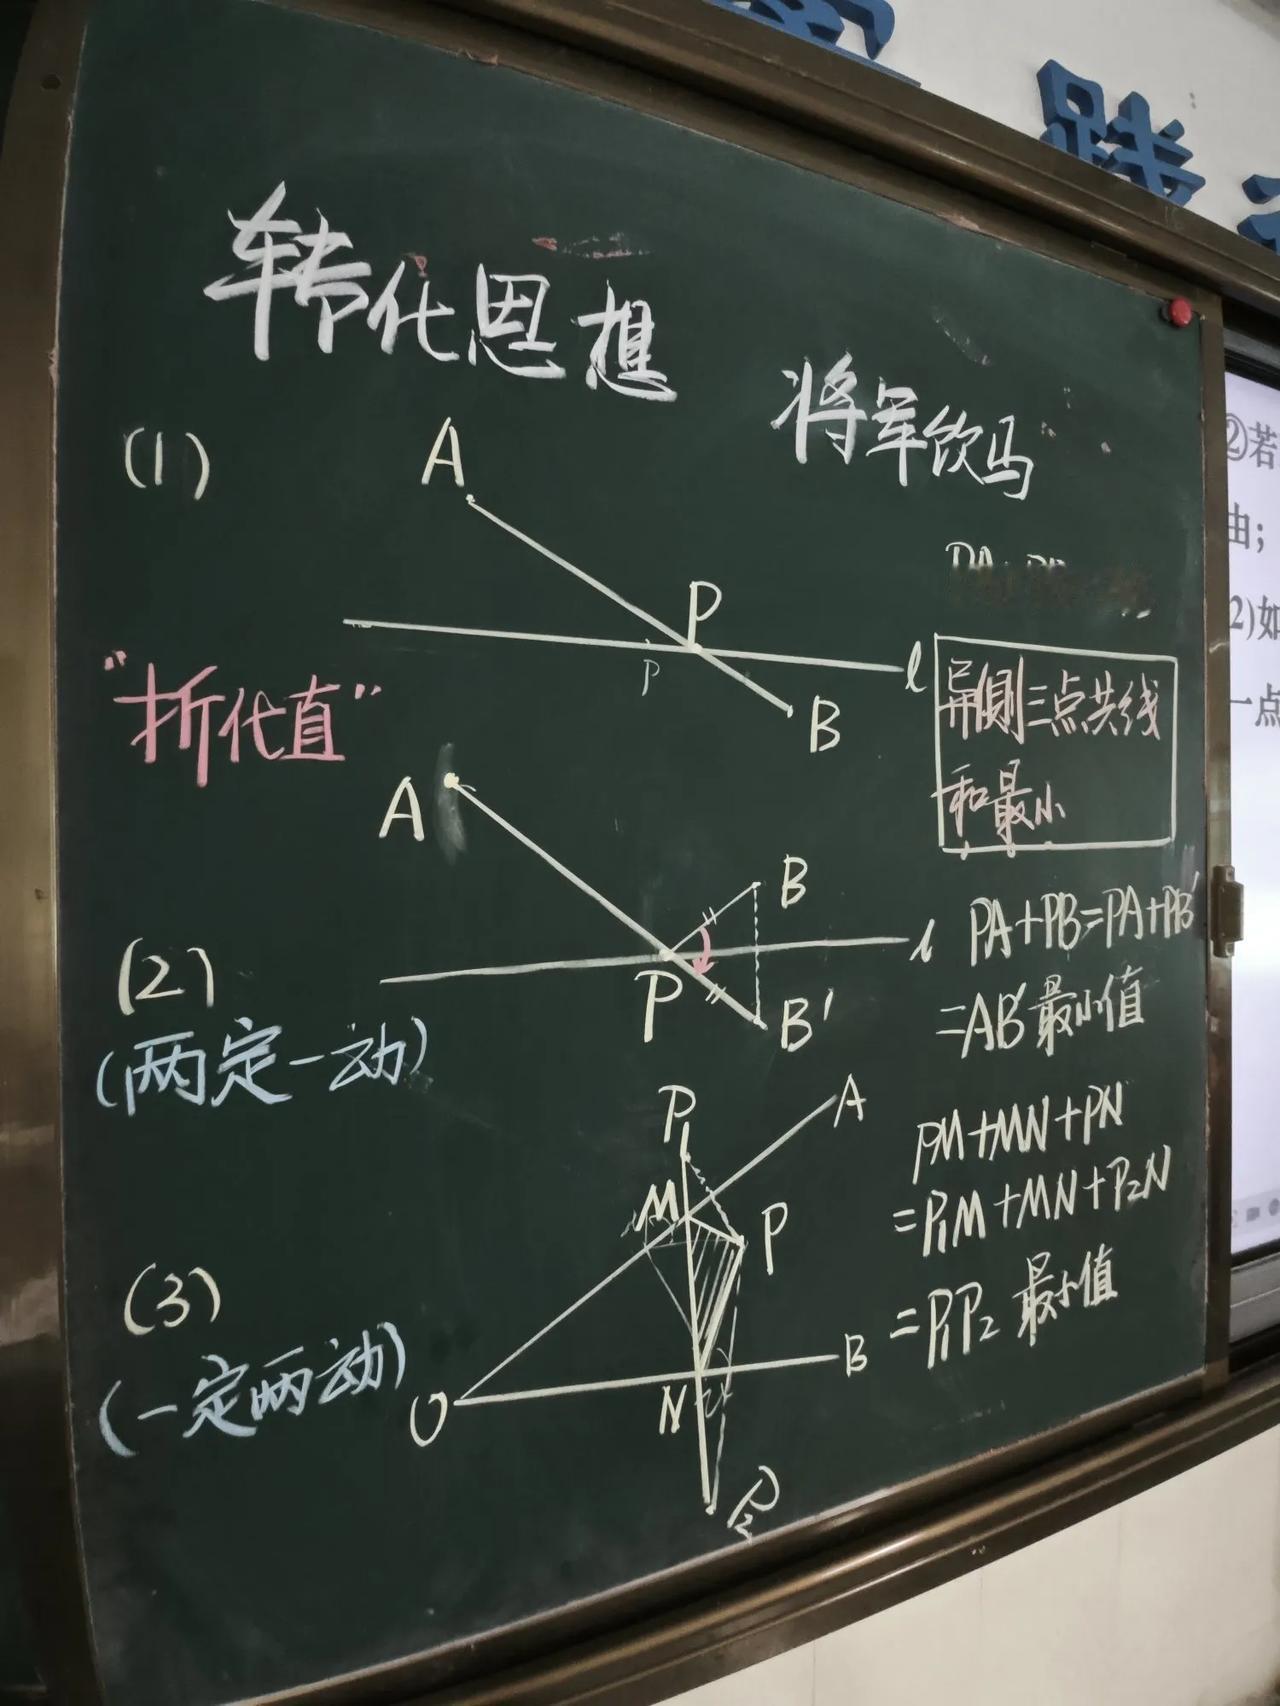 践
转化思想
将军饮马
(1)
A
P
P
l
B
"折代直"
异侧三点共线
和最小
②若
由；
2)如
一点
A
B
l
P
B'
(2)
(两定一动)
PA+PB=PA+PB'
=AB'最小值
P1
A
M
P
O
N
B
P2
(3)
(一定两动)
PM+MN+PN
=P1M+MN+P2N
=P1P2 最小值